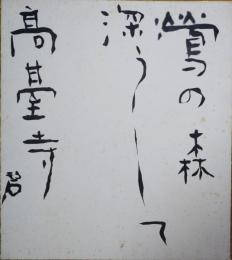 鶯の森
深うして
高䑓寺